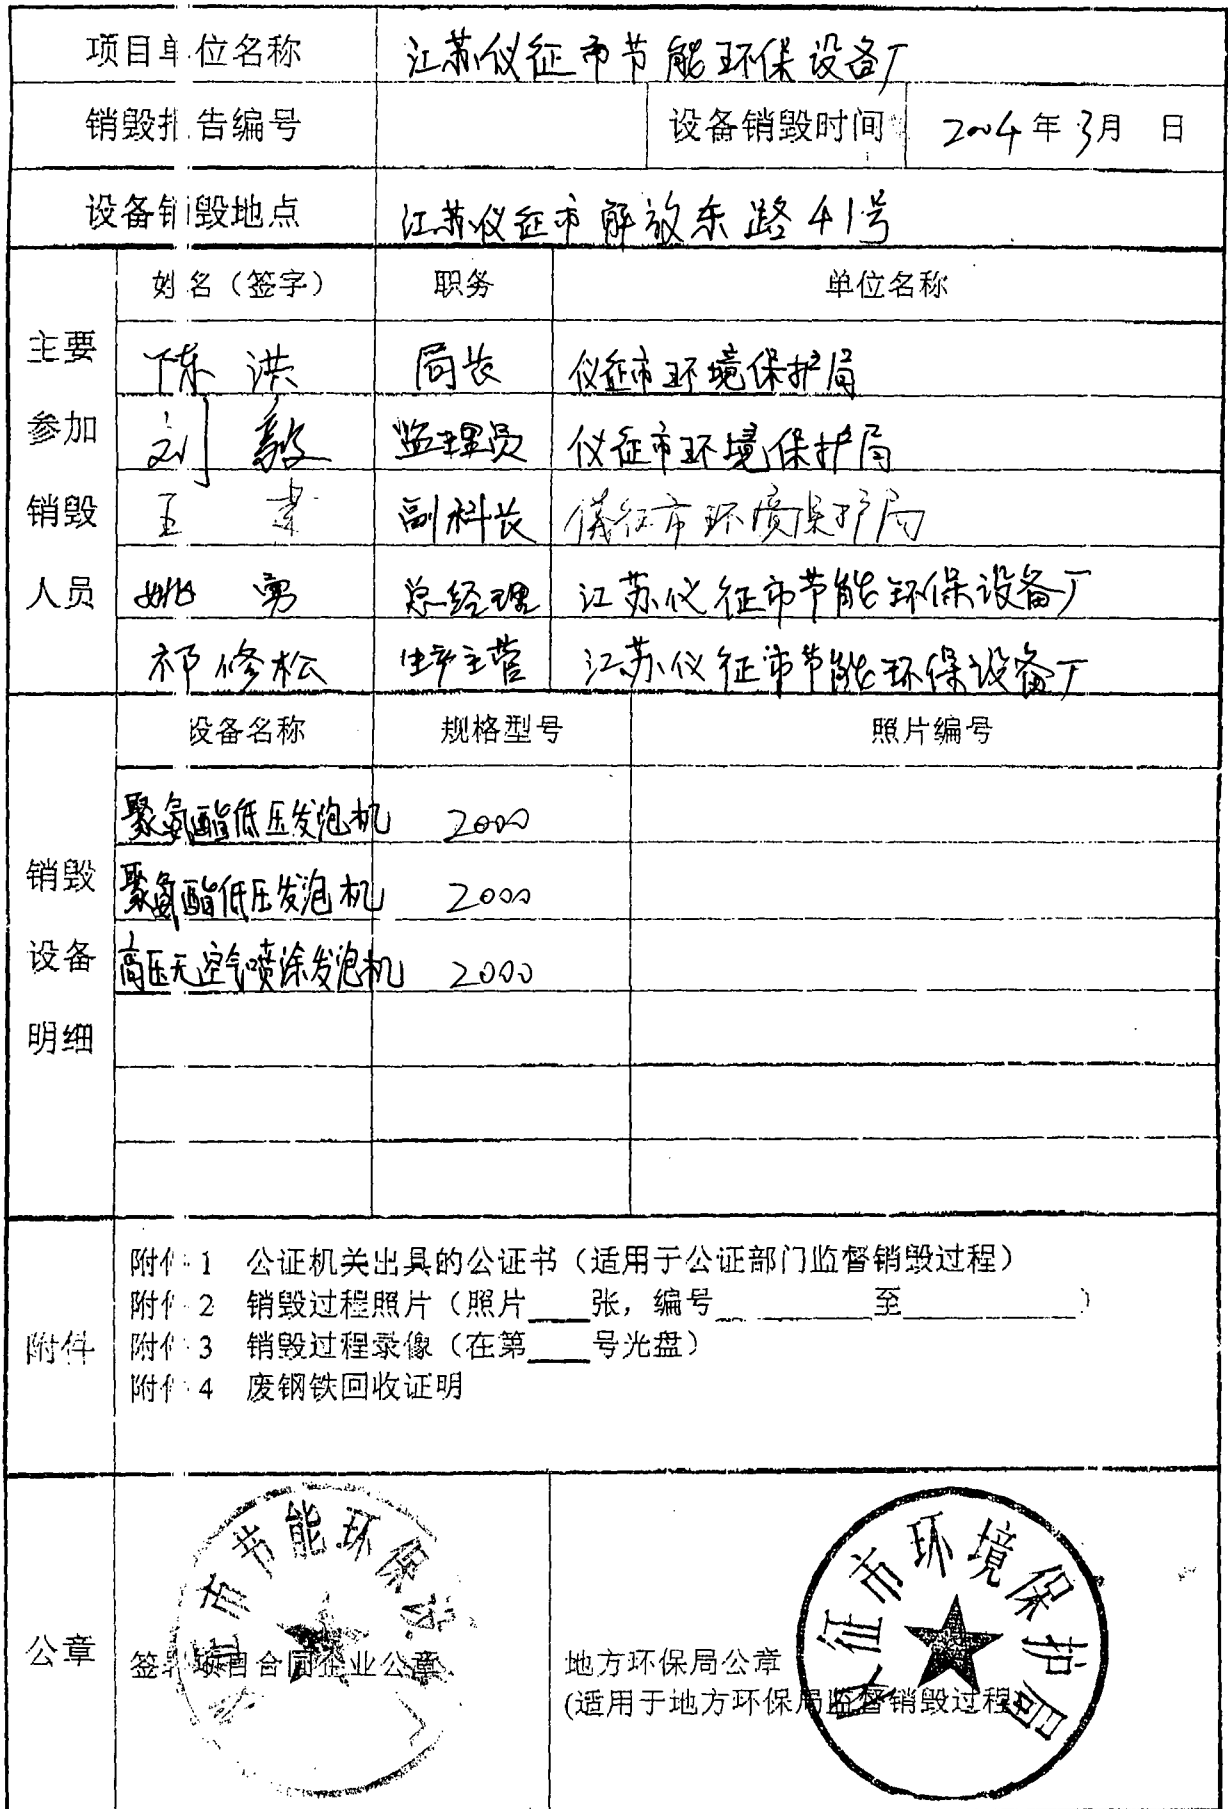 项目单位名称 江苏仪征市节能环保设备厂
销毁报告编号 设备销毁时间 2004年3月 日
设备销毁地点 江苏仪征市解放东路41号
主要参加销毁人员
姓名（签字） 职务 单位名称
陈洪 局长 仪征市环境保护局
刘毅 监理员 仪征市环境保护局
王 副科长 儀征市环境保护局
姚勇 总经理 江苏仪征市节能环保设备厂
祁修松 生产主管 江苏仪征市节能环保设备厂
销毁设备明细
设备名称 规格型号 照片编号
聚氨酯低压发泡机 2000
聚氨酯低压发泡机 2000
高压无空气喷涂发泡机 2000
附件
附件1 公证机关出具的公证书（适用于公证部门监督销毁过程）
附件2 销毁过程照片（照片____张，编号__________至___________）
附件3 销毁过程录像（在第____号光盘）
附件4 废钢铁回收证明
公章
签署项目合同企业公章
征市节能环保设 厂
地方环保局公章
(适用于地方环保局监督销毁过程
仪征市环境保护局